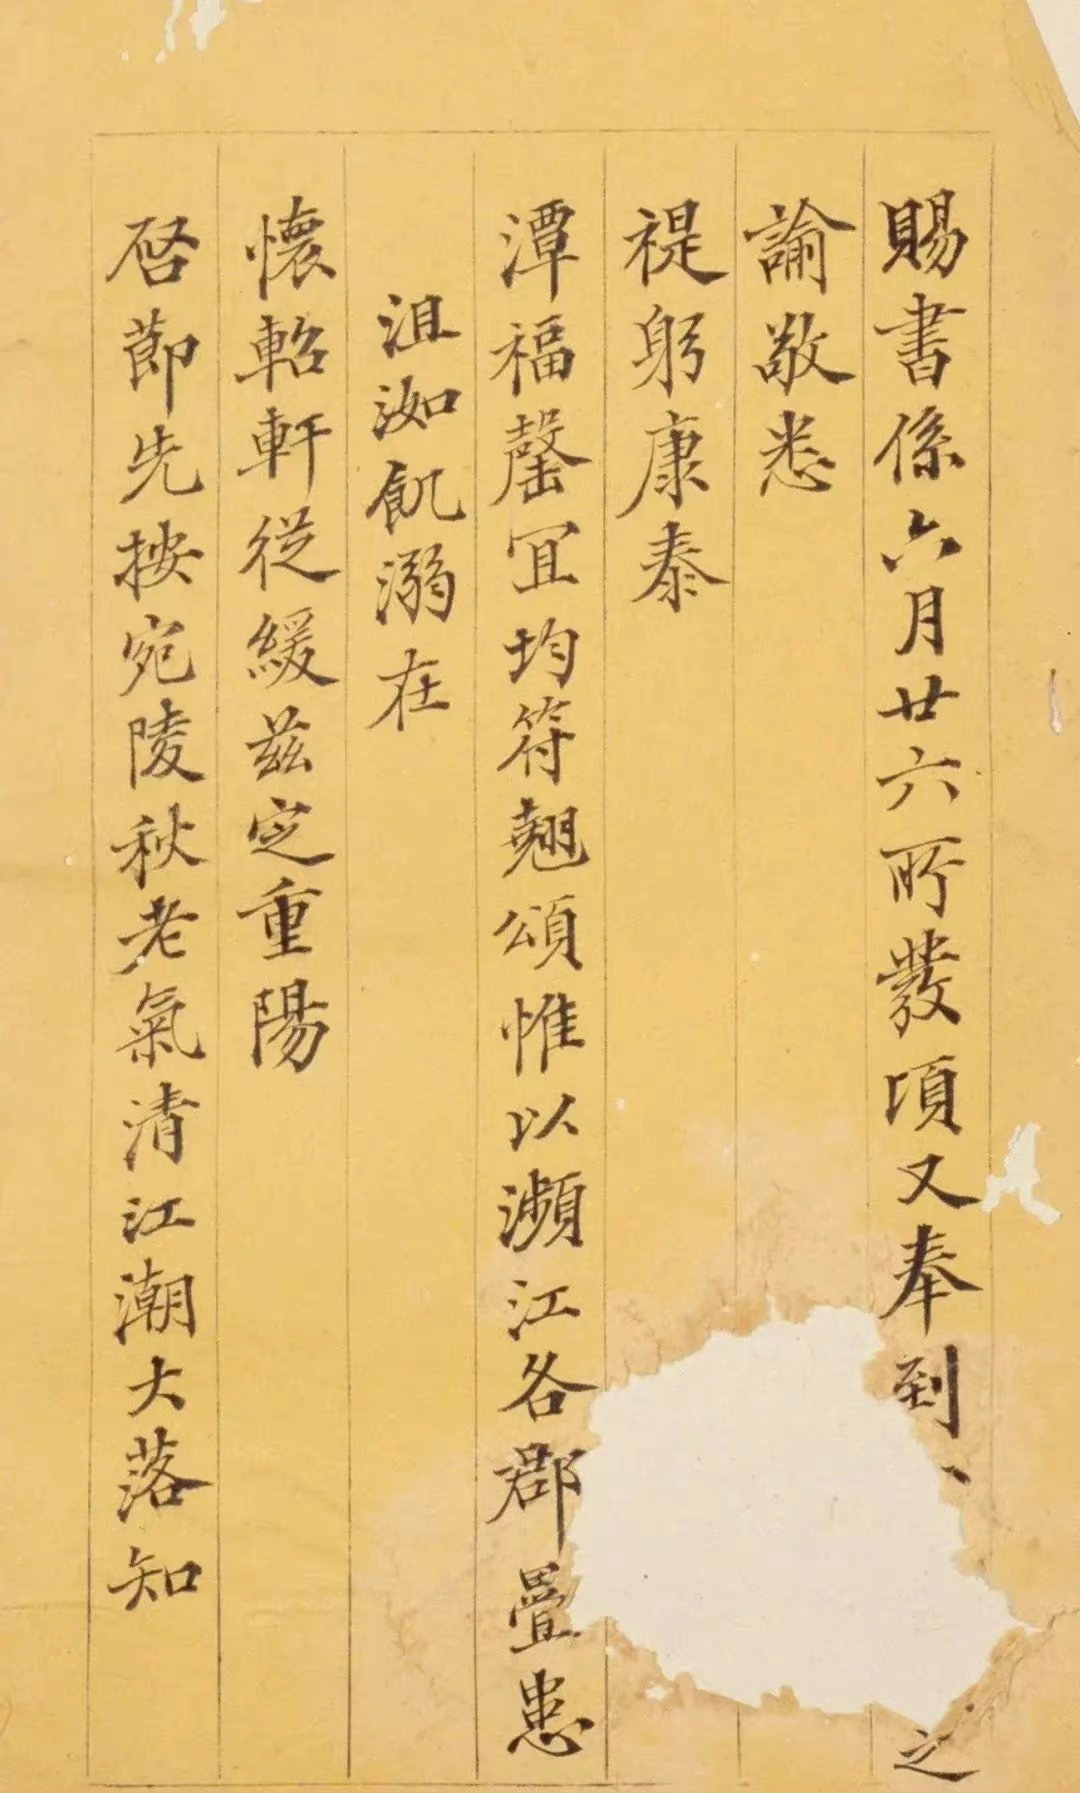 賜書係六月廿六所發頃又奉到之
諭敬悉
禔躬康泰
潭福罄宜均符翹頌惟以瀕江各郡疊患
沮洳飢溺在
懷軺軒從緩茲定重陽
啓節先按宛陵秋老氣清江潮大落知